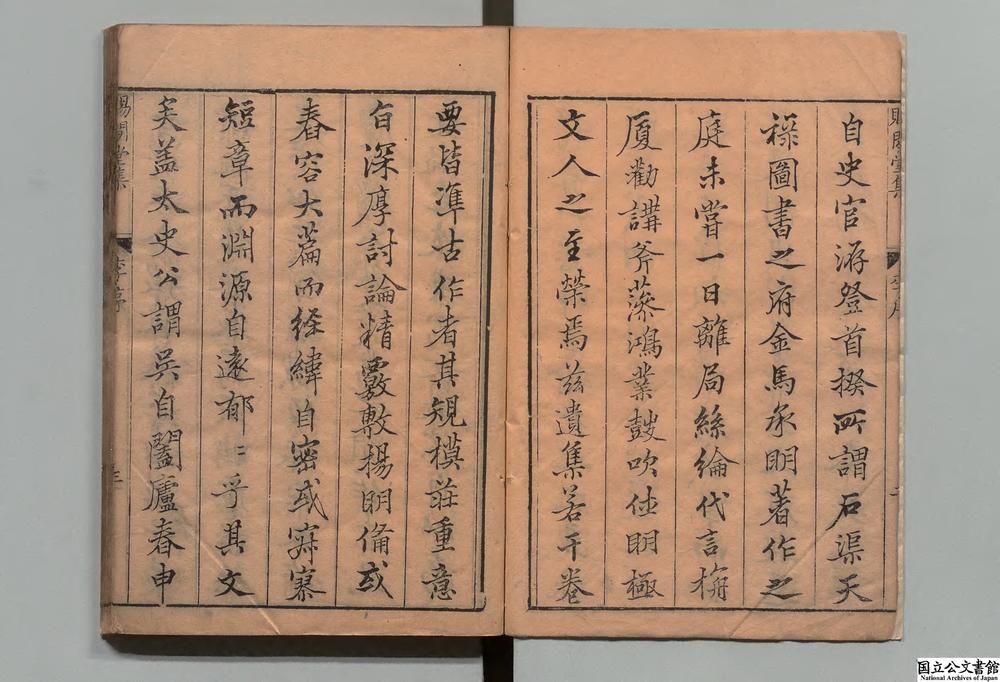 自史官游登首揆所謂石渠天
祿圖書之府金馬承明著作之
庭未嘗一日離局絲綸代言旃
厦勸講斧藻鴻業鼓吹休明極
文人之至榮焉茲遺集若干卷
要皆準古作者其規模莊重意
旨深厚討論精覈敷揚明備或
舂容大篇而經緯自密或寂寥
短章而淵源自遠郁〻乎其文
矣盖太史公謂吳自闔廬春申
賜閒堂集
李序
国立公文書館
National Archives of Japan